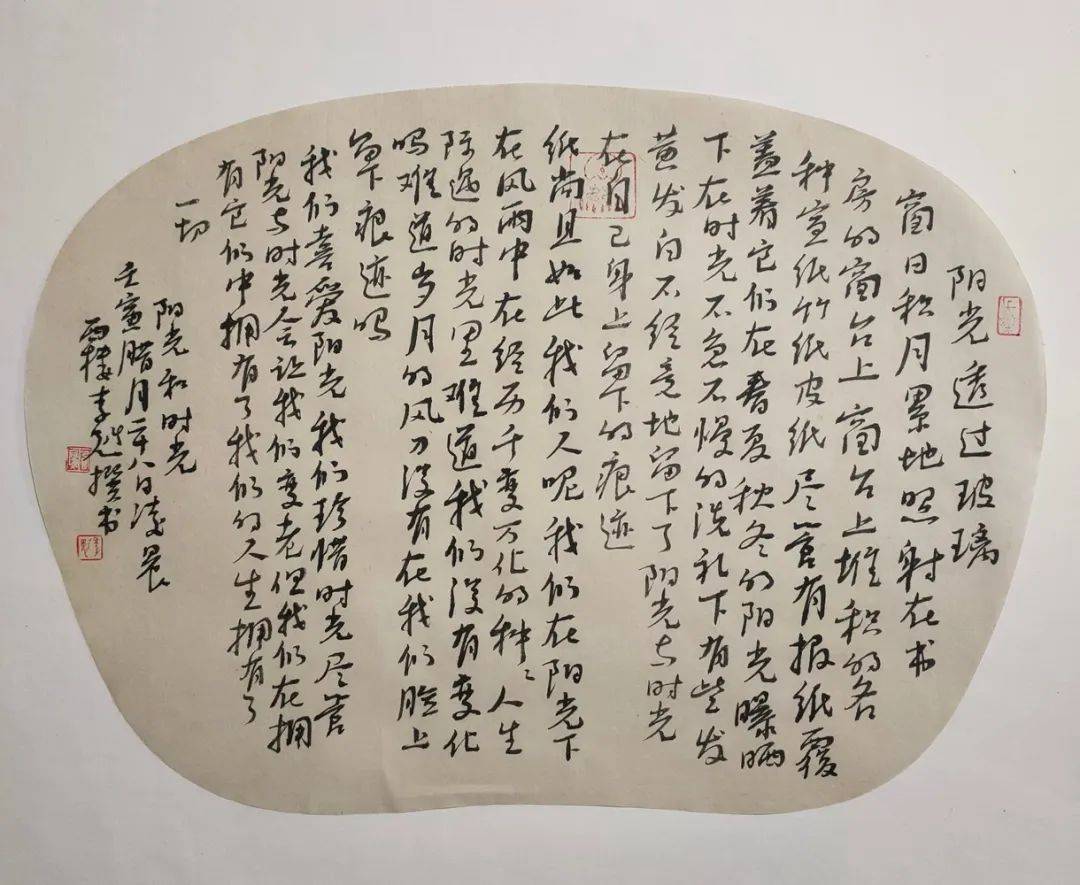 阳光透过玻璃
窗日积月累地照射在书
房的窗台上窗台上堆积的各
种宣纸竹纸皮纸尽管有报纸覆
盖着它们在春夏秋冬的阳光曝晒
下在时光不急不慢的洗礼下有些发
黄发白不经意地留下了阳光与时光
在自己身上留下的痕迹
纸尚且如此我们人呢我们在阳光下
在风雨中在经历千变万化的种〻人生
际遇的时光里难道我们没有变化
吗难道岁月的风刀没有在我们脸上
留下痕迹吗
我们喜爱阳光我们珍惜时光尽管
阳光与时光会让我们变老但我们在拥
有它们中拥有了我们的人生拥有了
一切
阳光和时光
壬寅腊月二十八日凌晨
雨楼李 撰书